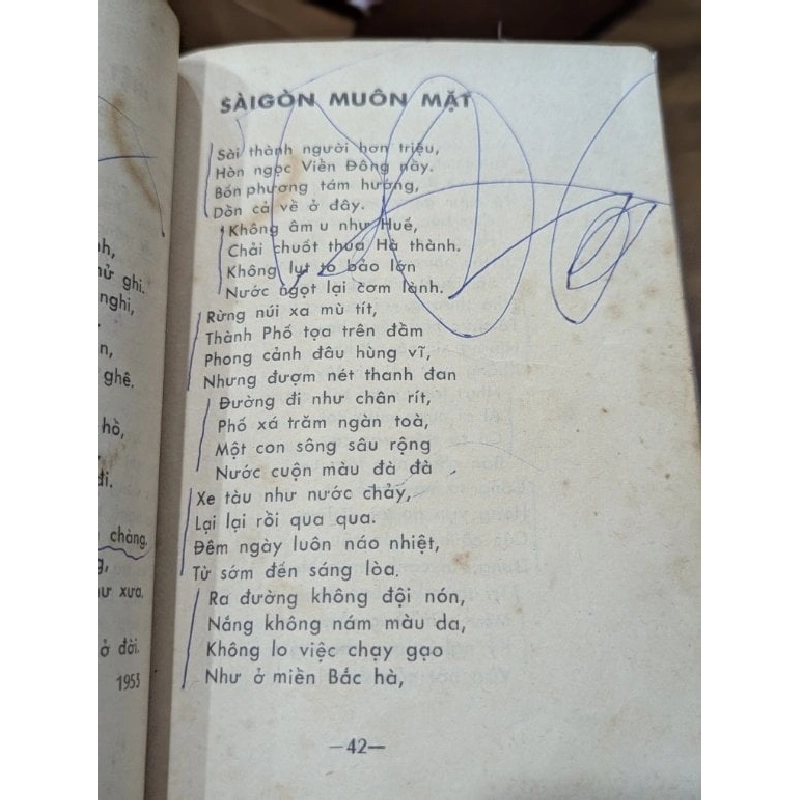 SÀIGÒN MUÔN MẶT
Sài thành người hơn triệu,
Hòn ngọc Viễn Đông này.
Bốn phương tám hướng,
Dồn cả về ở đây.
Không âm u như Huế,
Chải chuốt thua Hà thành.
Không lụt to bảo lớn
Nước ngọt lại cơm lành.
Rừng núi xa mù tít,
Thành Phố tọa trên đầm
Phong cảnh đâu hùng vĩ,
Nhưng đượm nét thanh đan
Đường đi như chân rít,
Phố xá trăm ngàn toà,
Một con sông sâu rộng
Nước cuộn màu đà đà
Xe tàu như nước chảy,
Lại lại rồi qua qua.
Đêm ngày luôn náo nhiệt,
Từ sớm đến sáng lòa.
Ra đường không đội nón,
Nắng không nám màu da,
Không lo việc chạy gạo
Như ở miền Bắc hà,
—42—
ghi.
nghi,
n,
ghê.
hồ,
đi.
chàng.
xưa.
ở đời.
1955